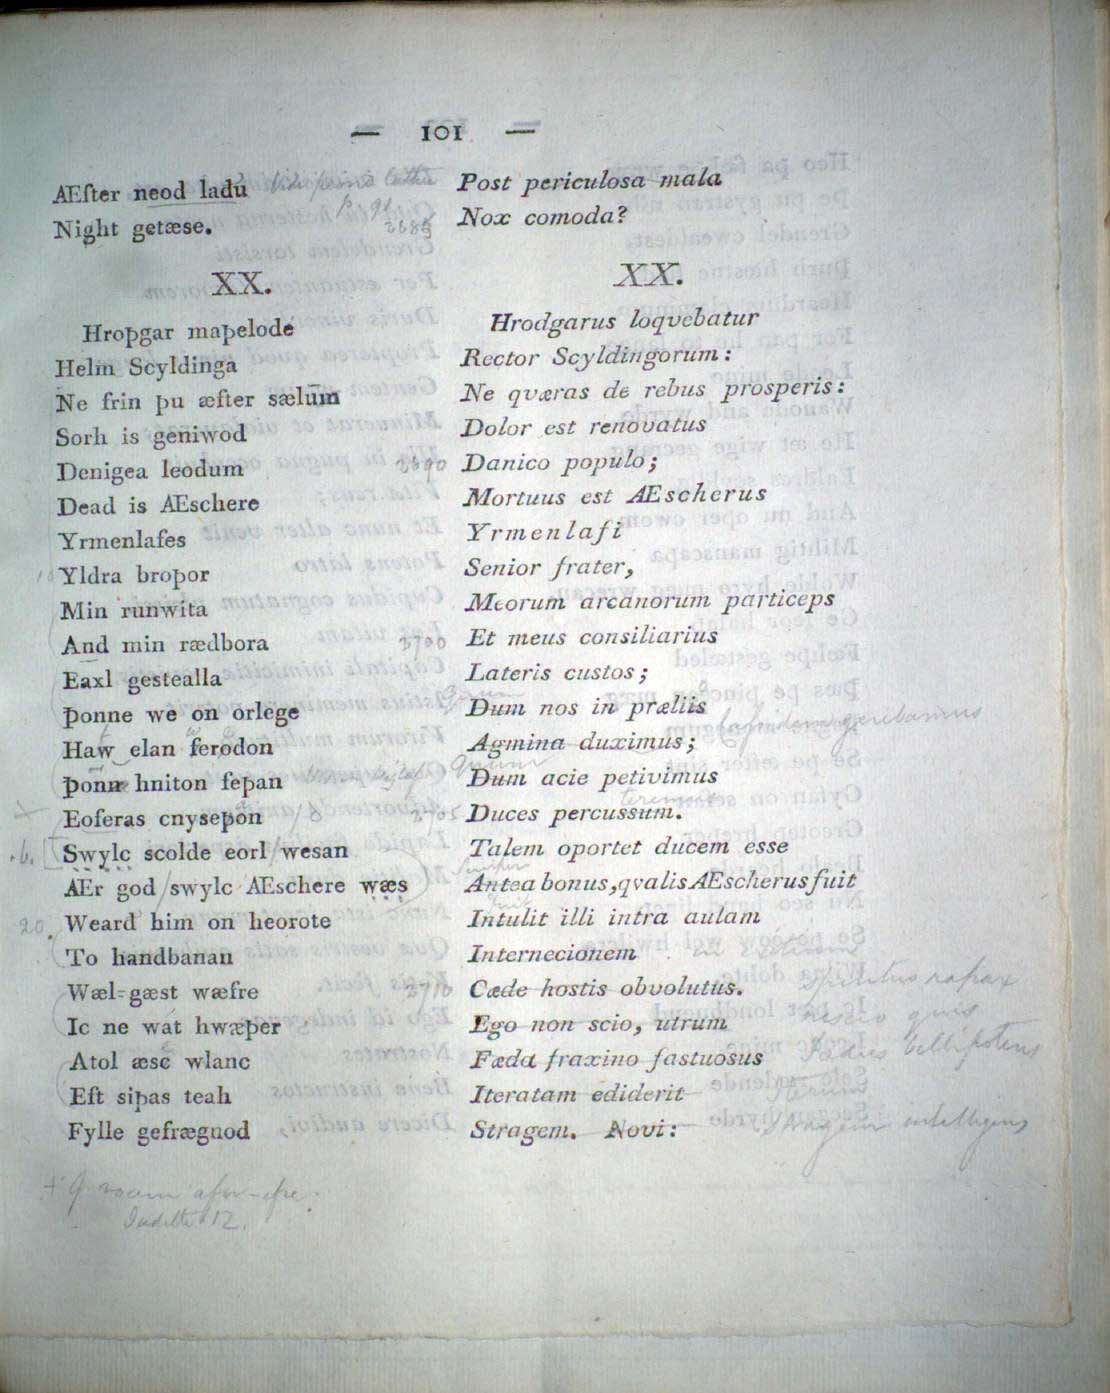 — 101 —
Æfter neod ladu
Night getæse.
XX.
Hroþgar maþelode
Helm Scyldinga
Ne frin þu æfter sælum
Sorh is geniwod
Denigea leodum
Dead is Æschere
Yrmenlafes
Yldra broþor
Min runwita
And min rædbora
Eaxl gestealla
Þonne we on orlege
Haw elan ferodon
Þonn hniton feþan
Eoferas cnyseþon
Swylc scolde eorl wesan
Ær god swylc Æschere wæs
Weard him on heorote
To handbanan
Wæl-gæst wæfre
Ic ne wat hwæþer
Atol æse wlanc
Eft siþas teah
Fylle gefrægnod
Post periculosa mala
Nox comoda?
XX.
Hrodgarus loqvebatur
Rector Scyldingorum:
Ne qværas de rebus prosperis:
Dolor est renovatus
Danico populo;
Mortuus est Æscherus
Yrmenlafi
Senior frater,
Meorum arcanorum particeps
Et meus consiliarius
Lateris custos;
Dum nos in præliis
Agmina duximus;
Dum acie petivimus
Duces percussum.
Talem oportet ducem esse
Antea bonus, qvalis Æscherus fuit
Intulit illi intra aulam
Internecionem
Cæde hostis obvolutus.
Ego non scio, utrum
Fæda fraxino fastuosus
Iteratam ediderit
Stragem. Novi:
2685
2690
2700
2705
2710
20.
Judith 12.